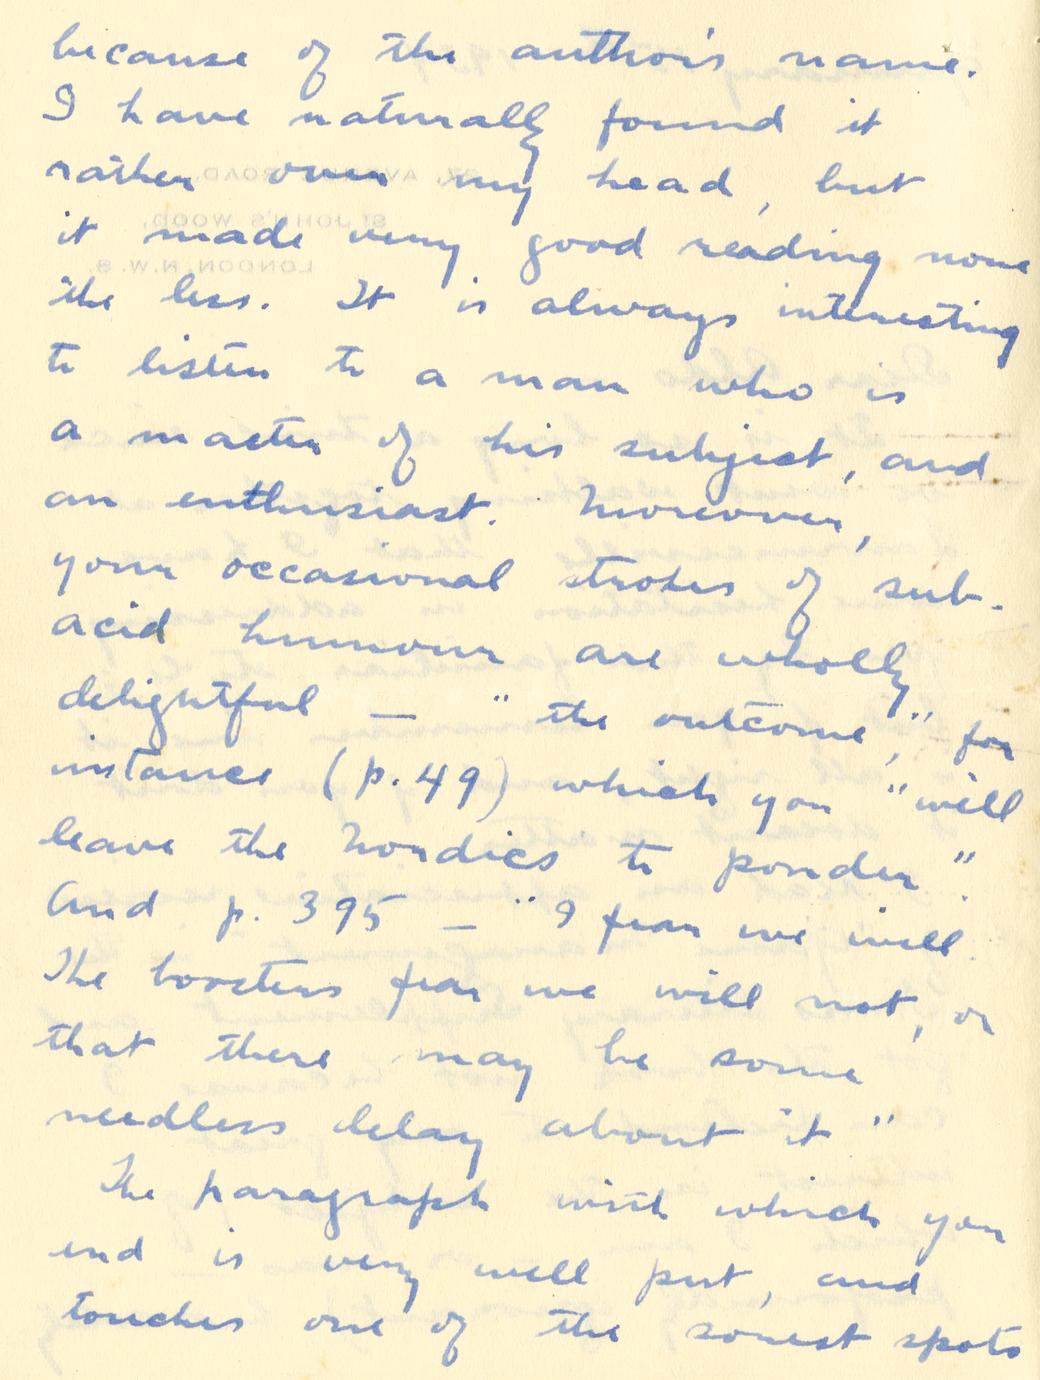 because of the author's name.
I have naturally found it
rather over my head, but
it made very good reading none
the less. It is always interesting
to listen to a man who is
a master of his subject, and
an enthusiast. Moreover,
your occasional strokes of sub-
acid humour are wholly
delightful — "the outcome," for
instance (p. 49) which you "will
leave the Nordics to ponder".
And p. 395 — "I fear we will.
The boosters fear we will not, or
that there may be some
needless delay about it"
The paragraph with which you
end is very well put, and
touches one of the sorest spots
AVENUE ROAD,
ST JOHN'S WOOD,
LONDON, N.W. 8.